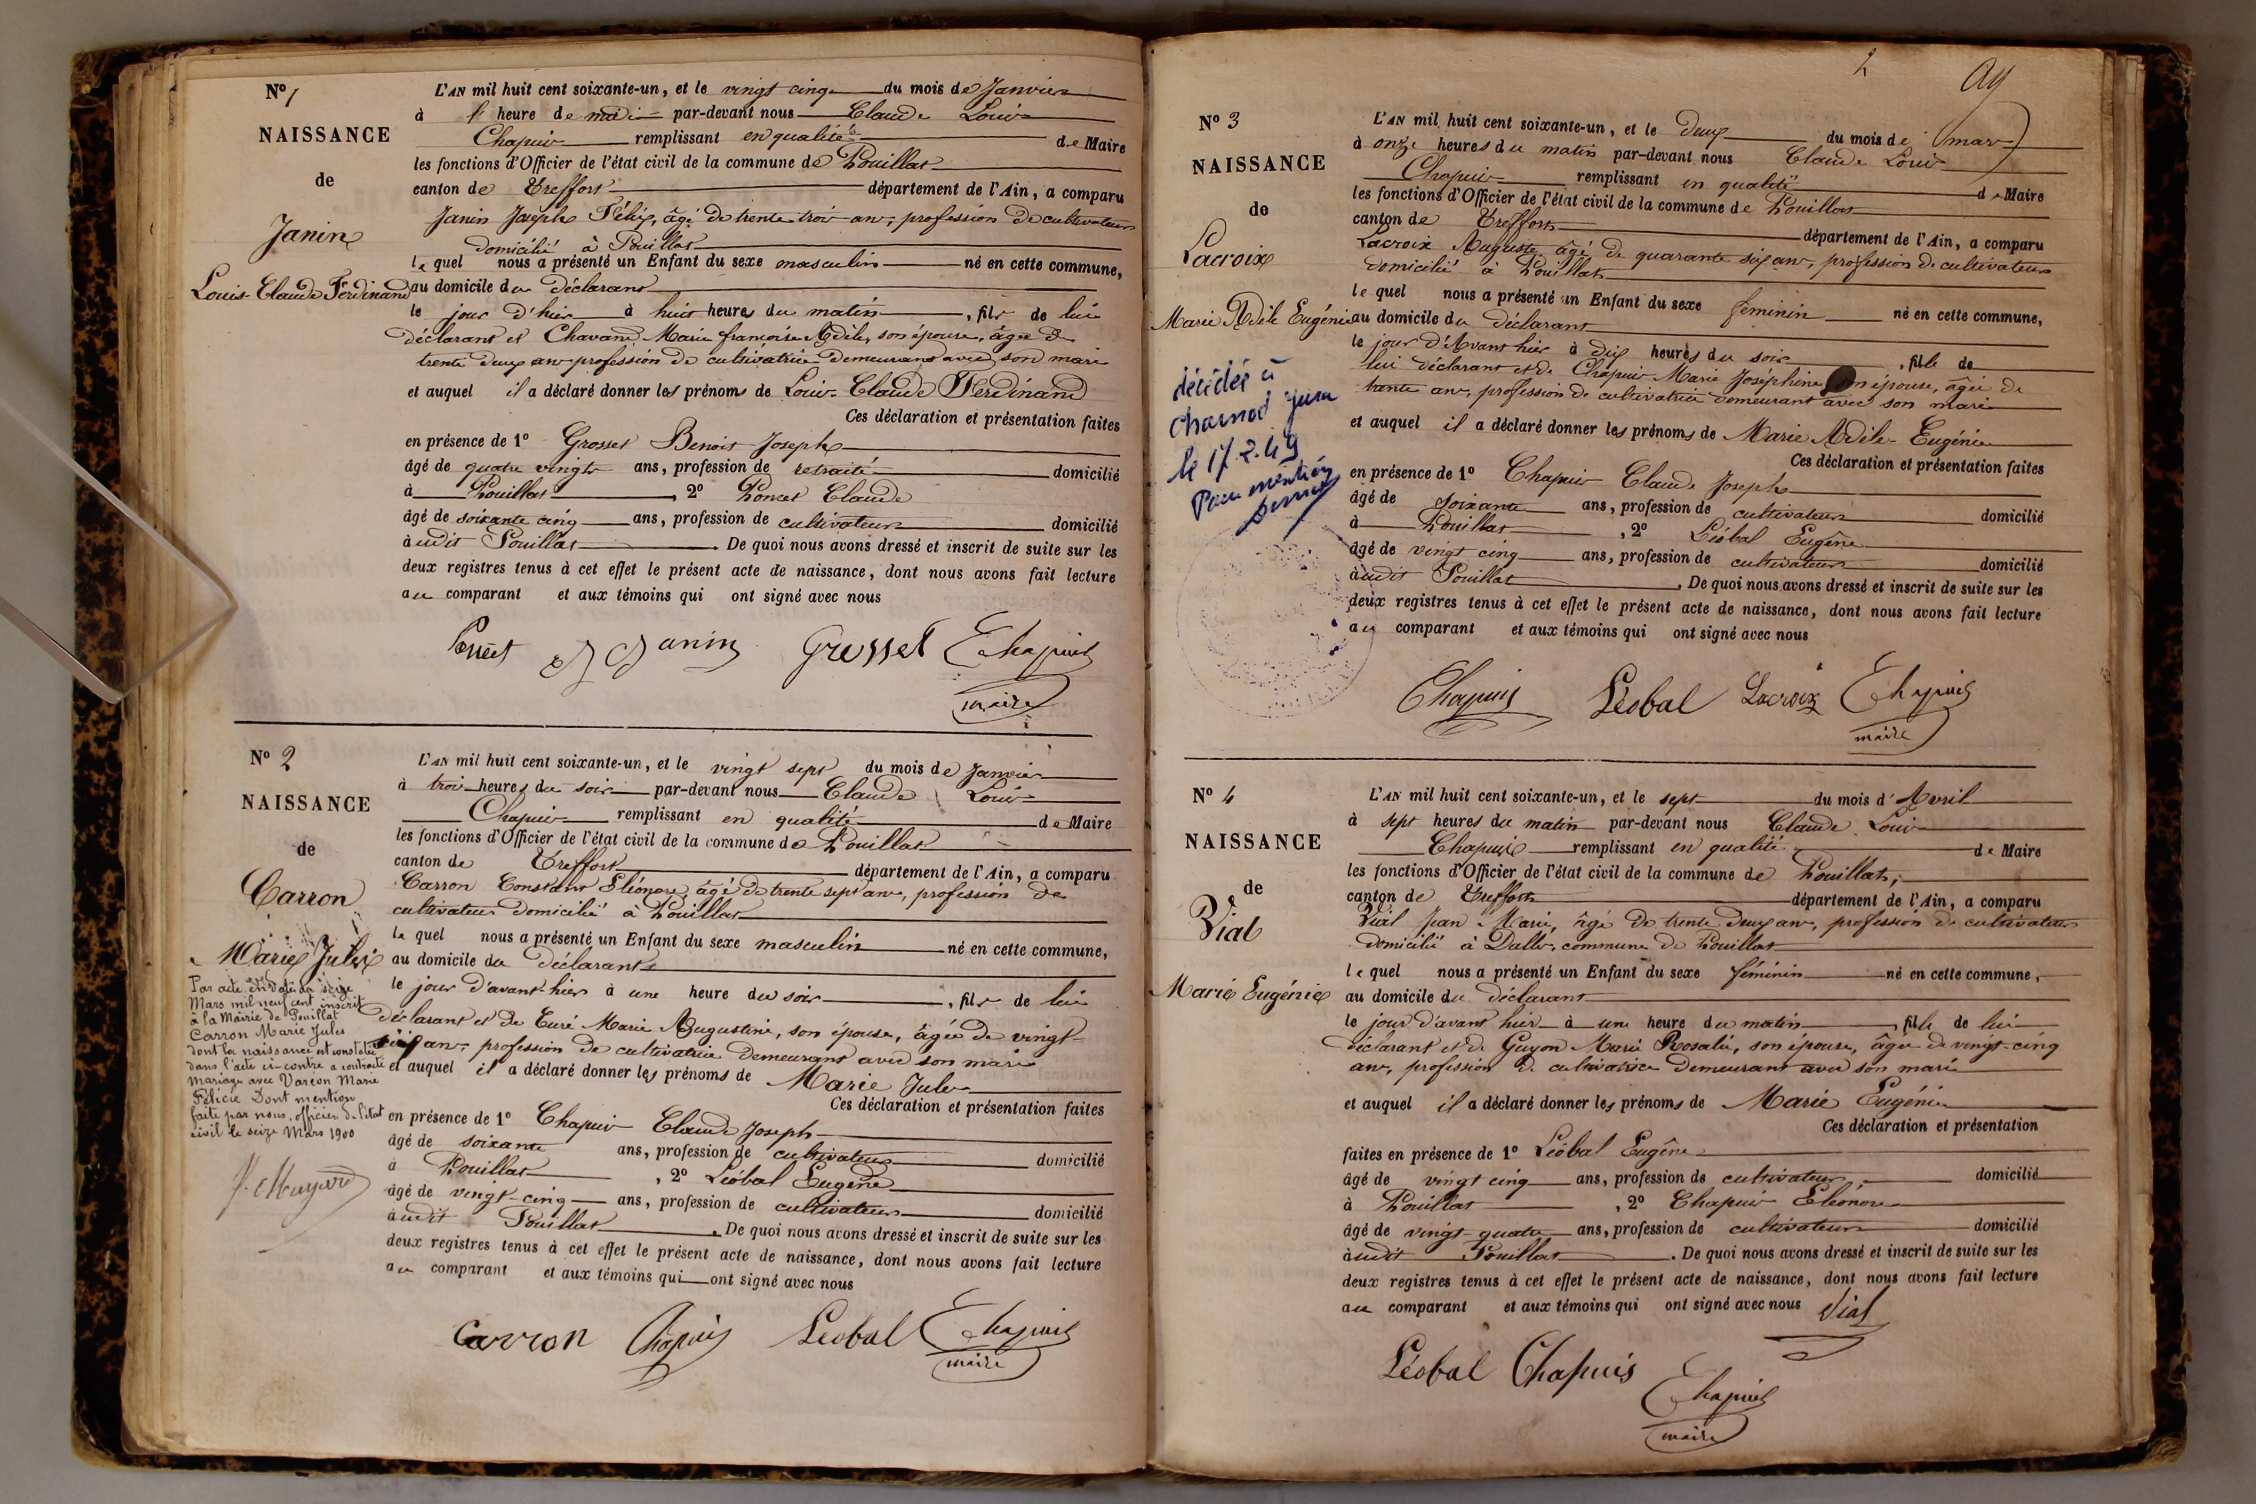 N° 1
NAISSANCE
de
Janin
Louis Claude Ferdinand
L'AN mil huit cent soixante-un, et le vingt cinq du mois de Janvier
à l' heure de midi par-devant nous Claude Louis
Chapuis remplissant en qualité de Maire
les fonctions d'Officier de l'état civil de la commune de Pouillat
canton de Treffort département de l'Ain, a comparu
Janin Joseph Félix, âgé de trente trois ans, profession de cultivateur
domicilié à Pouillat
lequel nous a présenté un Enfant du sexe masculin né en cette commune,
au domicile du déclarant
le jour d'hier à huit heures du matin, fils de lui
déclarant et Chavand Marie françoise Adèle, son épouse, âgée de
trente deux ans profession de cultivatrice demeurant avec son mari
et auquel il a déclaré donner les prénoms de Louis Claude Ferdinand
Ces déclaration et présentation faites
en présence de 1° Grosset Benoit Joseph
âgé de quatre vingts ans, profession de retraité domicilié
à Pouillat, 2° Poncet Claude
âgé de soixante cinq ans, profession de cultivateur domicilié
audit Pouillat. De quoi nous avons dressé et inscrit de suite sur les
deux registres tenus à cet effet le présent acte de naissance, dont nous avons fait lecture
au comparant et aux témoins qui ont signé avec nous
Poncet Janin Grosset Chapuis
maire
N° 2
NAISSANCE
de
Carron
Marie Jules
Par acte en date du seize
Mars mil neuf cent inscrit
à la Mairie de Pouillat
Carron Marie Jules
dont la naissance est constatée
dans l'acte ci-contre a contracté
mariage avec Varçon Marie
Félicie Dont mention
faite par nous, officier de l'état
civil le seize Mars 1900
L'AN mil huit cent soixante-un, et le vingt sept du mois de Janvier
à trois heures du soir par-devant nous Claude Louis
Chapuis remplissant en qualité de Maire
les fonctions d'Officier de l'état civil de la commune de Pouillat
canton de Treffort département de l'Ain, a comparu
Carron Constant Eléonore, âgé de trente sept ans, profession de
cultivateur domicilié à Pouillat
lequel nous a présenté un Enfant du sexe masculin né en cette commune,
au domicile du déclarant
le jour d'avant hier à une heure du soir, fils de lui
déclarant et de Curé Marie Augustine, son épouse, âgée de vingt
ans, profession de cultivatrice demeurant avec son mari
et auquel il a déclaré donner les prénoms de Marie Jules
Ces déclaration et présentation faites
en présence de 1° Chapuis Claude Joseph
âgé de soixante ans, profession de cultivateur domicilié
à Pouillat, 2° Léobal Eugène
âgé de vingt-cinq ans, profession de cultivateur domicilié
audit Pouillat. De quoi nous avons dressé et inscrit de suite sur les
deux registres tenus à cet effet le présent acte de naissance, dont nous avons fait lecture
au comparant et aux témoins qui ont signé avec nous
Carron Chapuis Léobal Chapuis
maire
2
N° 3
NAISSANCE
de
Lacroix
Marie Adèle Eugénie
décédée à
Charnod Jura
le 17.2.49
Pour mention
L'AN mil huit cent soixante-un, et le deux du mois de mars
à onze heures du matin par-devant nous Claude Louis
Chapuis remplissant en qualité de Maire
les fonctions d'Officier de l'état civil de la commune de Pouillat
canton de Treffort département de l'Ain, a comparu
Lacroix Auguste âgé de quarante six ans, profession de cultivateur
domicilié à Pouillat
lequel nous a présenté un Enfant du sexe féminin né en cette commune,
au domicile du déclarant
le jour d'Avant hier à dix heures du soir, fille de
lui déclarant et de Chapuis Marie Joséphine son épouse, âgée de
trente ans, profession de cultivatrice demeurant avec son mari
et auquel il a déclaré donner les prénoms de Marie Adèle Eugénie
Ces déclaration et présentation faites
en présence de 1° Chapuis Claude Joseph
âgé de soixante ans, profession de cultivateur domicilié
à Pouillat, 2° Léobal Eugène
âgé de vingt cinq ans, profession de cultivateur domicilié
audit Pouillat. De quoi nous avons dressé et inscrit de suite sur les
deux registres tenus à cet effet le présent acte de naissance, dont nous avons fait lecture
au comparant et aux témoins qui ont signé avec nous
Chapuis Léobal Lacroix Chapuis
maire
N° 4
NAISSANCE
de
Vial
Marie Eugénie
L'AN mil huit cent soixante-un, et le sept du mois d'Avril
à sept heures du matin par-devant nous Claude Louis
Chapuis remplissant en qualité de Maire
les fonctions d'Officier de l'état civil de la commune de Pouillat,
canton de Treffort département de l'Ain, a comparu
Vial Jean Marie, âgé de trente deux ans, profession de cultivateur
domicilié à Dalles, commune de Pouillat
lequel nous a présenté un Enfant du sexe féminin né en cette commune,
au domicile du déclarant
le jour d'avant hier à une heure du matin, fille de lui
déclarant et de Guyon Marie Rosalie, son épouse, âgée de vingt-cinq
ans, profession de cultivatrice demeurant avec son mari
et auquel il a déclaré donner les prénoms de Marie Eugénie
Ces déclaration et présentation
faites en présence de 1° Léobal Eugène
âgé de vingt cinq ans, profession de cultivateur, domicilié
à Pouillat, 2° Chapuis Eléonore
âgé de vingt-quatre ans, profession de cultivateur domicilié
audit Pouillat. De quoi nous avons dressé et inscrit de suite sur les
deux registres tenus à cet effet le présent acte de naissance, dont nous avons fait lecture
au comparant et aux témoins qui ont signé avec nous Vial
Léobal Chapuis
Chapuis
maire